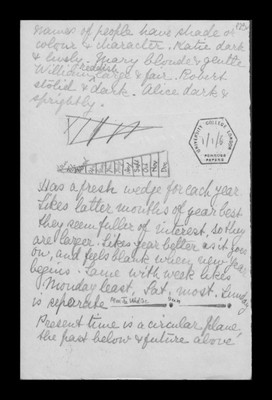 Names of people have shade or
colour & character. Katie dark
& lively. Mary blonde & gentle
William reddish large & fair. Robert
stolid & dark. Alice dark &
sprightly.
UNIVERSITY COLLEGE LONDON
PEARSON
PAPERS
Has a fresh wedge for each year
Likes latter months of year best
they seem fuller of interest, so they
are larger. Likes year better as it goes
on, and feels blank when new year
begins. Same with week likes
Monday least, Sat. most. Sunday
is separate
Present time is a circular plane,
the past below & future above